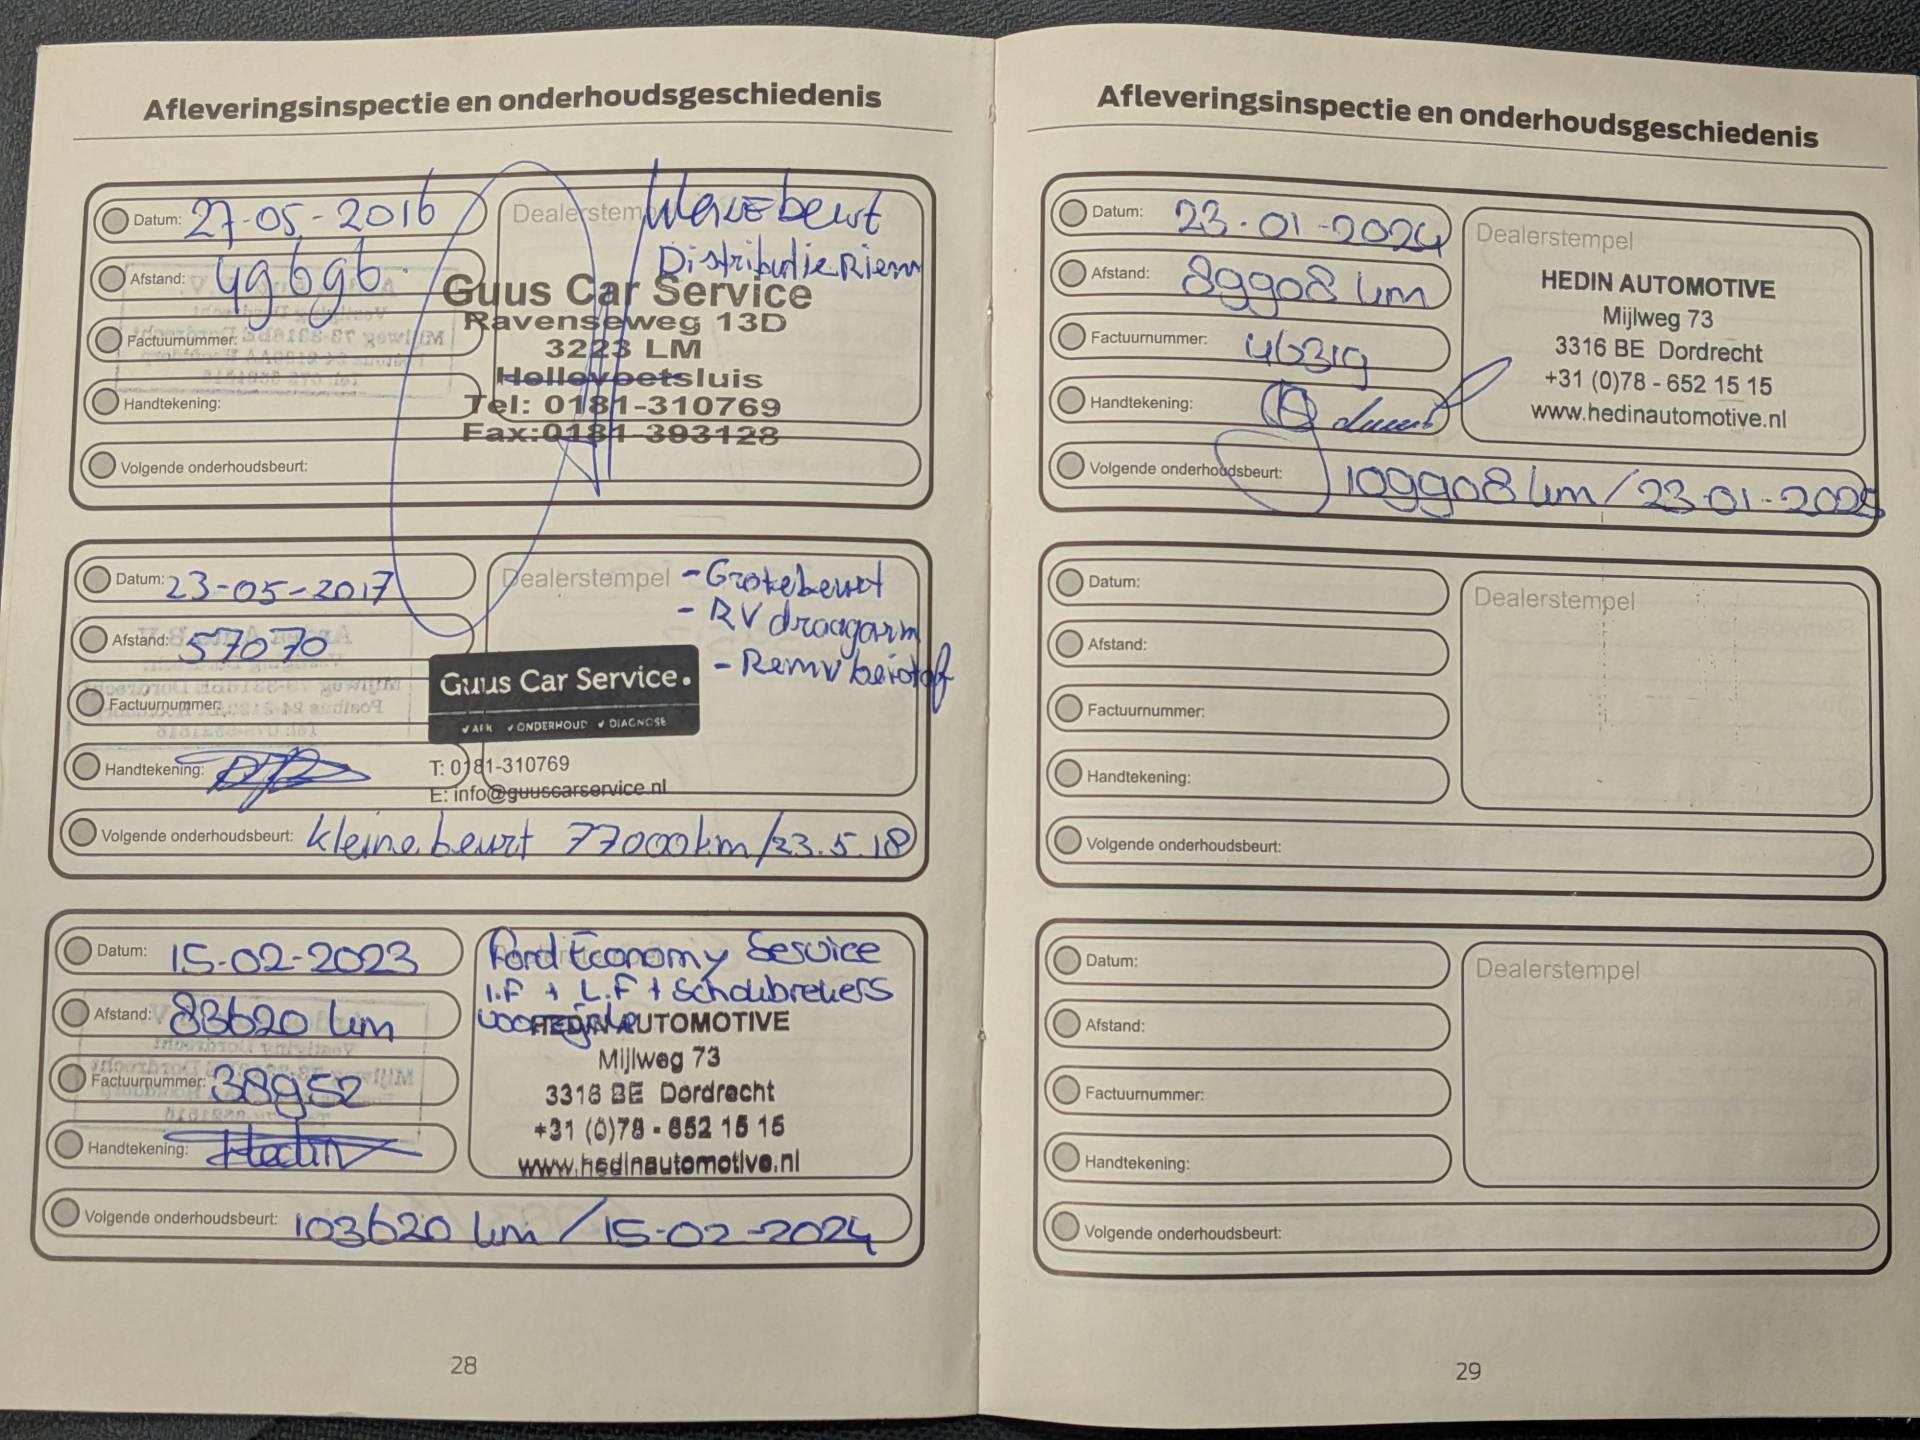 Afleveringsinspectie en onderhoudsgeschiedenis
Datum: 27-05-2016
Afstand: 49696
Factuurnummer:
Handtekening:
Volgende onderhoudsbeurt:
Dealerstempel
beurt
Distributie Riem
Guus Car Service
Ravenseweg 13D
3223 LM
Hellevoetsluis
Tel: 0181-310769
Fax:0181-393128
Datum: 23-05-2017
Afstand: 57070
Factuurnummer:
Handtekening:
Dealerstempel
- Grotebeurt
- RV draagarm
- Remv beistof
Guus Car Service.
✓ APK ✓ ONDERHOUD ✓ DIAGNOSE
T: 0181-310769
E: info@guuscarservice.nl
Volgende onderhoudsbeurt: kleine beurt 77000km/23.5.18
Datum: 15-02-2023
Afstand: 83620 km
Factuurnummer: 38952
Handtekening: Hedin
Ford Economy Service
I.F + L.F + Schokbrekers
voorzijde
HEDIN AUTOMOTIVE
Mijlweg 73
3316 BE Dordrecht
+31 (0)78 - 652 15 15
www.hedinautomotive.nl
Volgende onderhoudsbeurt: 103620 km / 15-02-2024
28
Afleveringsinspectie en onderhoudsgeschiedenis
Datum: 23-01-2024
Afstand: 89908 km
Factuurnummer: 46319
Handtekening:
Dealerstempel
HEDIN AUTOMOTIVE
Mijlweg 73
3316 BE Dordrecht
+31 (0)78 - 652 15 15
www.hedinautomotive.nl
Volgende onderhoudsbeurt: 109908 km / 23-01-2025
Datum:
Afstand:
Factuurnummer:
Handtekening:
Dealerstempel
Volgende onderhoudsbeurt:
Datum:
Afstand:
Factuurnummer:
Handtekening:
Dealerstempel
Volgende onderhoudsbeurt:
29